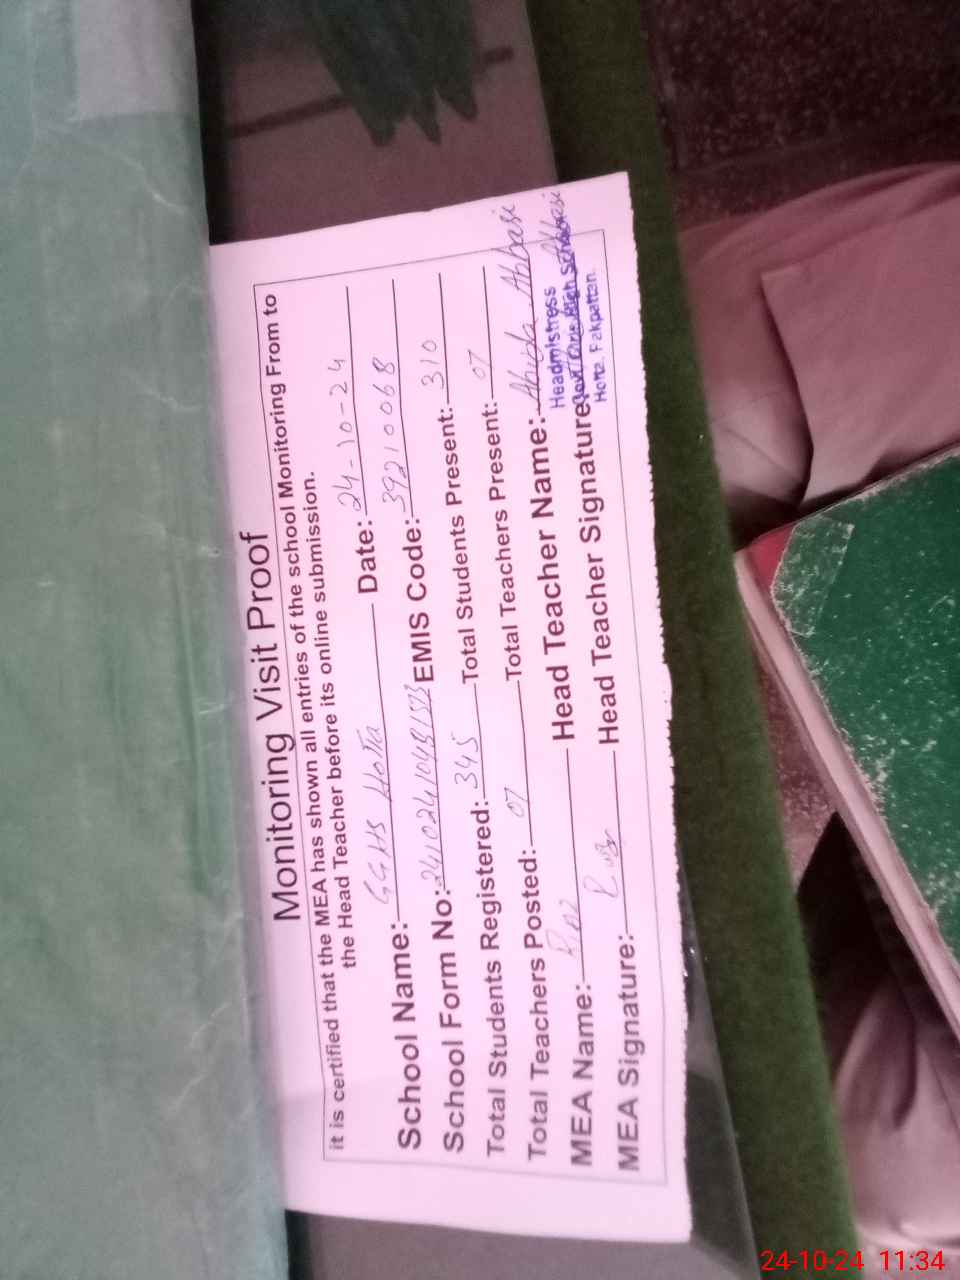 Monitoring Visit Proof
it is certified that the MEA has shown all entries of the school Monitoring From to
the Head Teacher before its online submission.
School Name: GGHS Hotta Date: 24-10-24
School Form No: EMIS Code: 39210068
Total Students Registered: 345 Total Students Present: 310
Total Teachers Posted: 07 Total Teachers Present: 07
MEA Name: Head Teacher Name: Abbasi
MEA Signature: Head Teacher Signature
Headmistress
Govt. Girls High School
Hotta, Pakpattan.
24-10-24 11:34